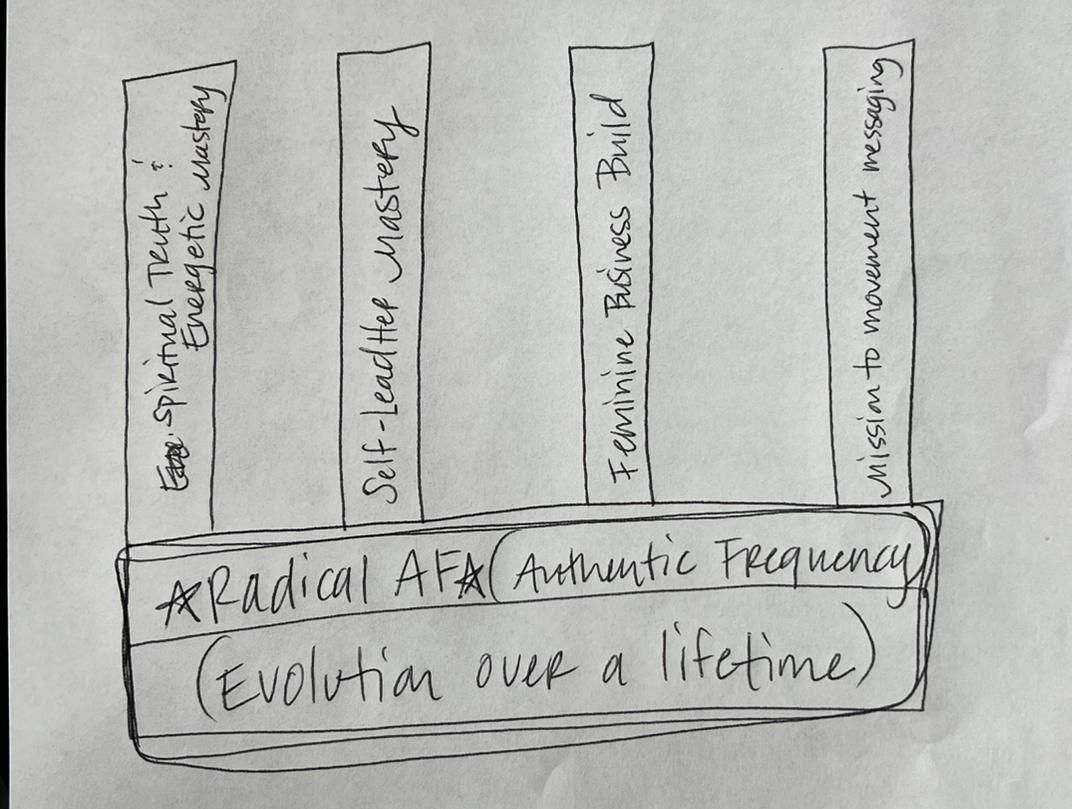 Spiritual Truth &
Energetic Mastery
Self-LeadHer Mastery
Feminine Business Build
Mission to movement messaging
☆Radical AF☆(Authentic Frequency
(Evolution over a lifetime)